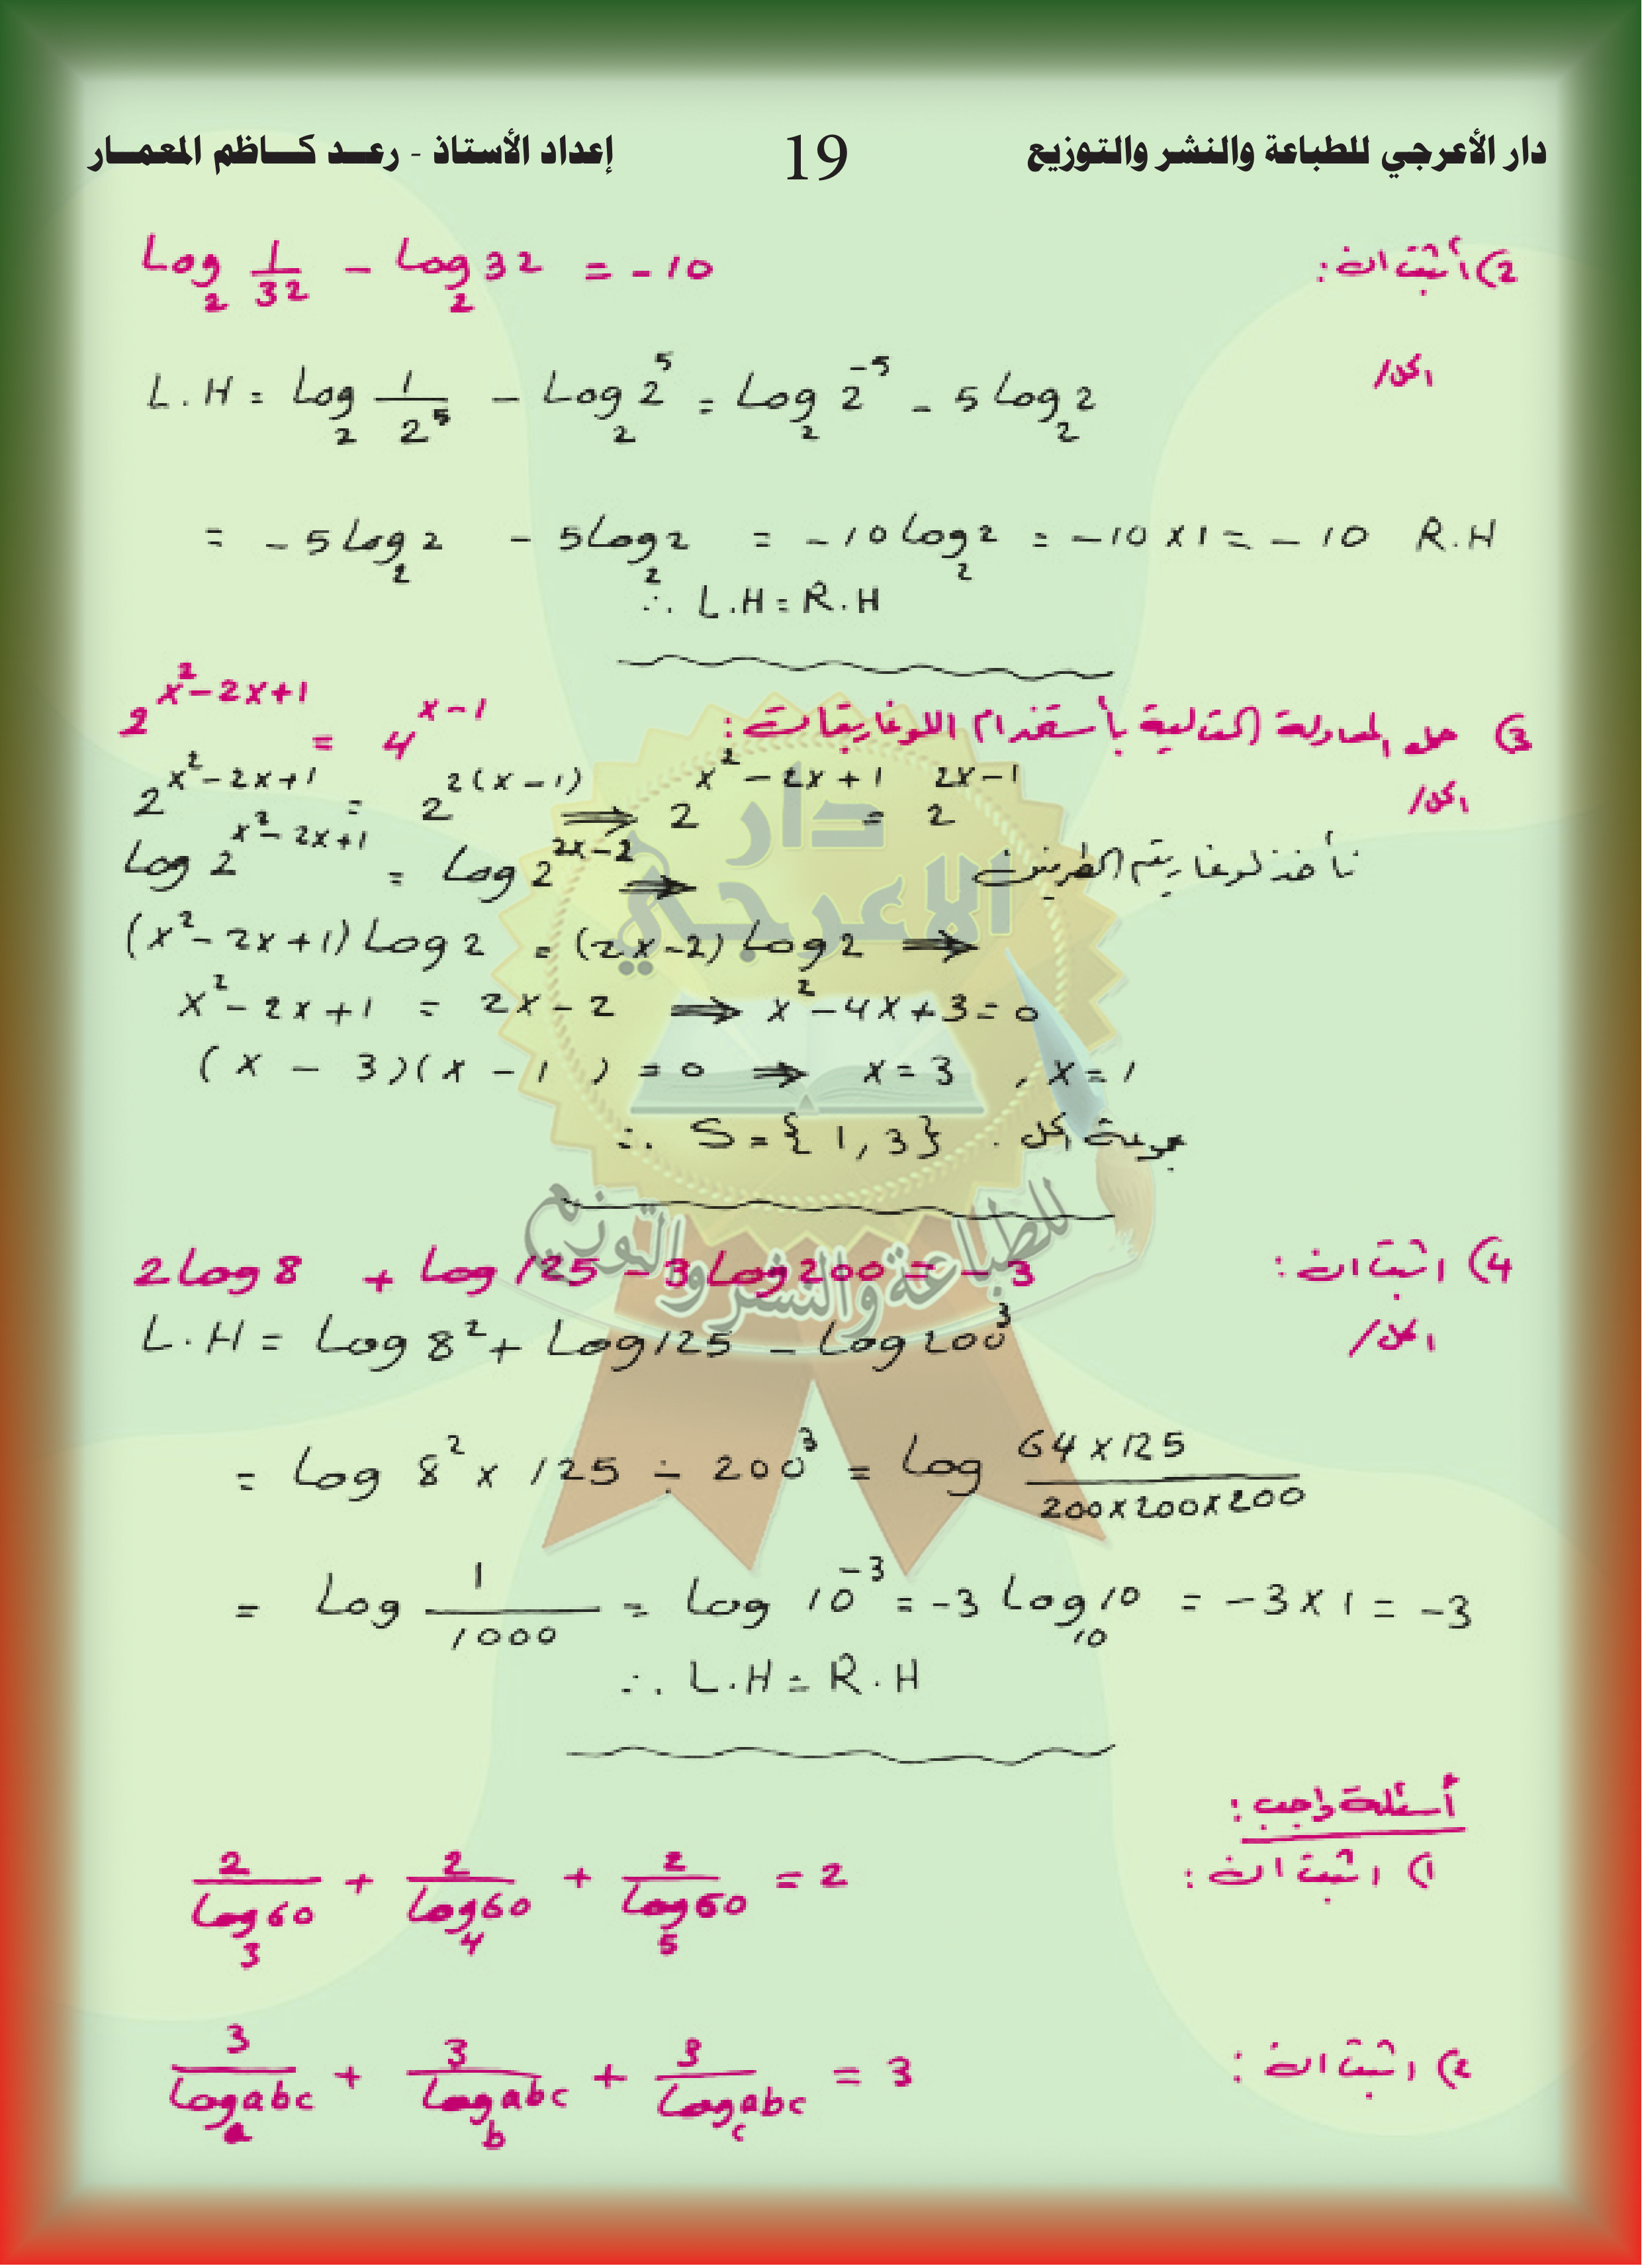 دار الأعرجي للطباعة والنشر والتوزيع 19 إعداد الأستاذ - رعد كاظم المعمار
2) أثبت ان : log₂ 1/32 - log₂ 32 = -10
الحل/
L.H = log₂ 1/2⁵ - log₂ 2⁵ = log₂ 2⁻⁵ - 5 log₂ 2
= -5 log₂ 2 - 5 log₂ 2 = -10 log₂ 2 = -10 × 1 = -10 R.H
∴ L.H = R.H
3) حل المعادلة التالية بأستخدام اللوغاريتمات : 2^(x²-2x+1) = 4^(x-1)
الحل/
2^(x²-2x+1) = 2^(2(x-1)) ⇒ 2^(x²-2x+1) = 2^(2x-1)
log 2^(x²-2x+1) = log 2^(2x-2) ⇒ نأخذ لوغاريتم الطرفين
(x²-2x+1) log 2 = (2x-2) log 2 ⇒
x²-2x+1 = 2x-2 ⇒ x²-4x+3=0
(x - 3)(x - 1) = 0 ⇒ x = 3 , x = 1
∴ S = {1, 3} . مجموعة الحل
4) اثبت ان : 2 log 8 + log 125 - 3 log 200 = -3
الحل/
L.H = log 8² + log 125 - log 200³
= log 8² × 125 ÷ 200³ = log (64×125)/(200×200×200)
= log 1/1000 = log 10⁻³ = -3 log₁₀ 10 = -3 × 1 = -3
∴ L.H = R.H
أسئلة واجب :
1) اثبت ان : 2/log₃ 60 + 2/log₄ 60 + 2/log₅ 60 = 2
2) اثبت ان : 3/logₐ abc + 3/log_b abc + 3/log_c abc = 3
دار
الاعرجي
للطباعة والنشر والتوزيع